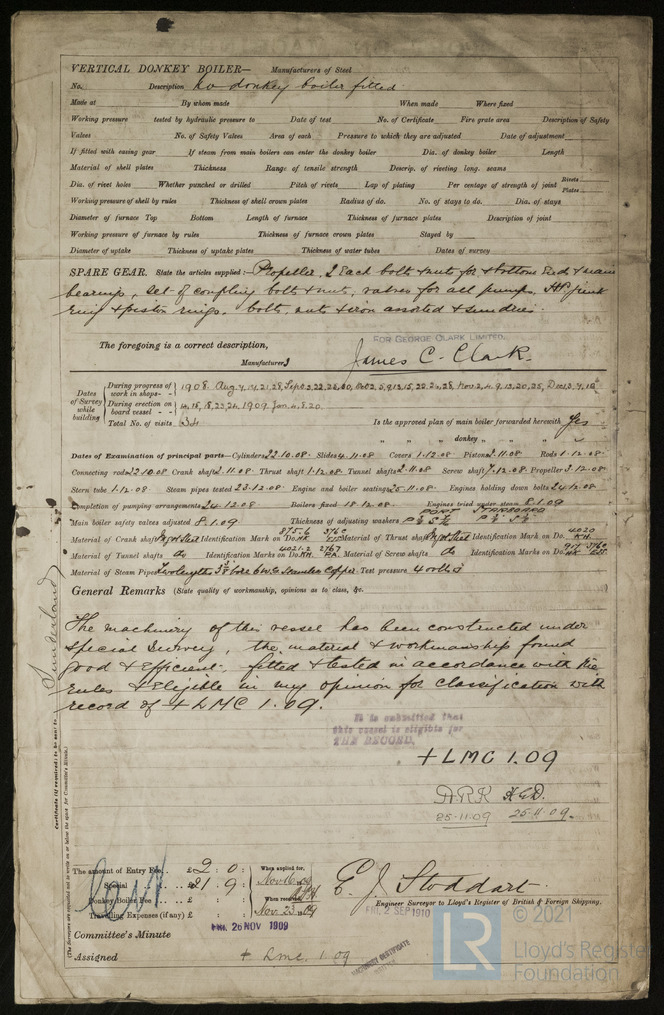 VERTICAL DONKEY BOILER— Manufacturers of Steel
No. Description No donkey boiler fitted
Made at By whom made When made Where fixed
Working pressure tested by hydraulic pressure to Date of test No. of Certificate Fire grate area Description of Safety
Valves No. of Safety Valves Area of each Pressure to which they are adjusted Date of adjustment
If fitted with easing gear If steam from main boilers can enter the donkey boiler Dia. of donkey boiler Length
Material of shell plates Thickness Range of tensile strength Descrip. of riveting long. seams
Dia. of rivet holes Whether punched or drilled Pitch of rivets Lap of plating Per centage of strength of joint Rivets Plates
Working pressure of shell by rules Thickness of shell crown plates Radius of do. No. of stays to do. Dia. of stays
Diameter of furnace Top Bottom Length of furnace Thickness of furnace plates Description of joint
Working pressure of furnace by rules Thickness of furnace crown plates Stayed by
Diameter of uptake Thickness of uptake plates Thickness of water tubes Dates of survey
SPARE GEAR. State the articles supplied:— Propeller, 2 Each bolts & nuts for & bottom End & main
bearings, set of coupling bolts & nuts, valves for all pumps, HP junk
ring & piston rings, bolts, nuts & iron assorted & sundries.
The foregoing is a correct description,
FOR GEORGE CLARK LIMITED,
Manufacturer James C. Clark.
Dates of Survey while building
During progress of work in shops - - 1908. Aug 7, 14, 21, 28, Sep
During erection on board vessel - - 14, 18, 18, 23, 24, 1909. Jan. 4. 8. 20
Total No. of visits 34 Is the approved plan of main boiler forwarded herewith Yes
" " " donkey " " "
Dates of Examination of principal parts—Cylinders 22.10.08. Slides 4.11.08 Covers 1.12.08 Pistons 2.11.08 Rods 1.12.08
Connecting rods 22.10.08 Crank shaft 2.11.08. Thrust shaft 1.12.08. Tunnel shafts 2.11.08 Screw shaft 7.12.08 Propeller 3.12.08
Stern tube 1.12.08. Steam pipes tested 23.12.08 Engine and boiler seatings 25.11.08. Engines holding down bolts 24.12.08
Completion of pumping arrangements 24.12.08 Boilers fixed 18.12.08 Engines tried under steam 8.1.09
Main boiler safety valves adjusted 8.1.09 Thickness of adjusting washers PORT STARBOARD
Material of Crank shaft Ingot Steel Identification Mark on Do. Material of Thrust shaft Ingot Steel Identification Mark on Do. 4020
Material of Tunnel shafts do Identification Marks on Do. 4021.2 2767 Material of Screw shafts do Identification Marks on Do.
Material of Steam Pipes Two lengths bore 6 W.G. Seamless Copper. Test pressure 400 lbs
General Remarks (State quality of workmanship, opinions as to class, &c.
The machinery of this vessel has been constructed under
special survey, the material & workmanship found
good & Efficient, fitted & tested in accordance with the
rules & Eligible in my opinion for classification with
record of + LMC 1.09.
It is submitted that
this vessel is eligible for
THE RECORD,
+ LMC 1.09
A.R.K. H.G.D.
25-11-09 25-11-09.
Sunderland
Certificate (if required) to be sent to
(The Surveyors are requested not to write on or below the space for Committee's Minute.)
The amount of Entry Fee.. £ 2 : 0 : When applied for,
Special .. £21 . 9 : Nov. 16.09
Donkey Boiler Fee .. £ : : When received,
Travelling Expenses (if any) £ : : Nov. 23.09
E. J. Stoddart.
Engineer Surveyor to Lloyd's Register of British & Foreign Shipping.
FRI. 2 SEP 1910
Committee's Minute FRI. 26 NOV 1909
Assigned + Lmc. 1.09
MACHINERY CERTIFICATE
WRITTEN
LR
© 2021
Lloyd's Register
Foundation